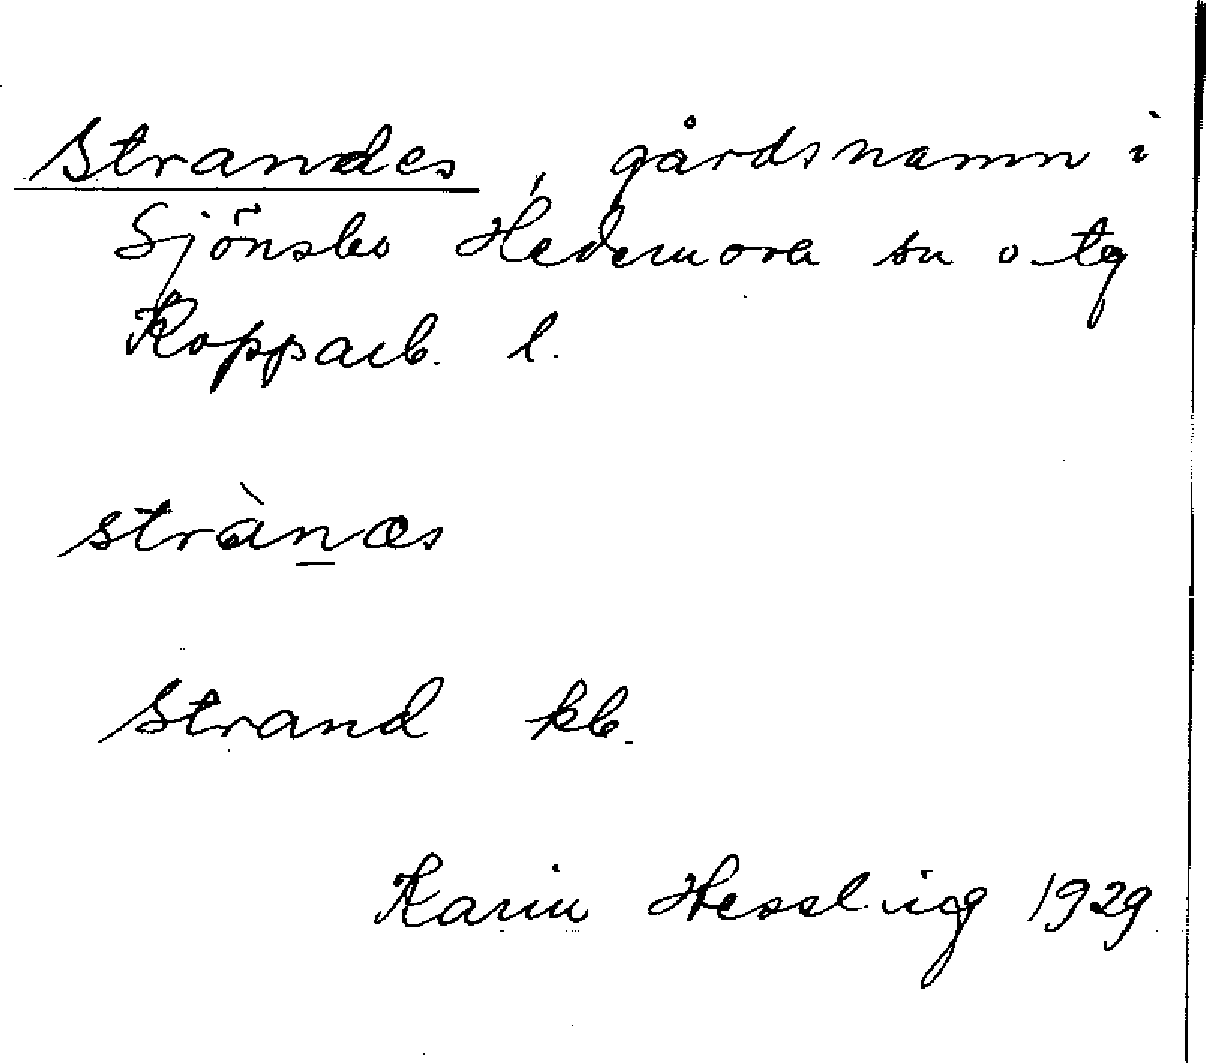 Strandes, gårdsnamn i
Sjönsbo Hedemora sn o tg
Kopparb. l.
strànæs
Strand kb.
Karin Hessling 1929